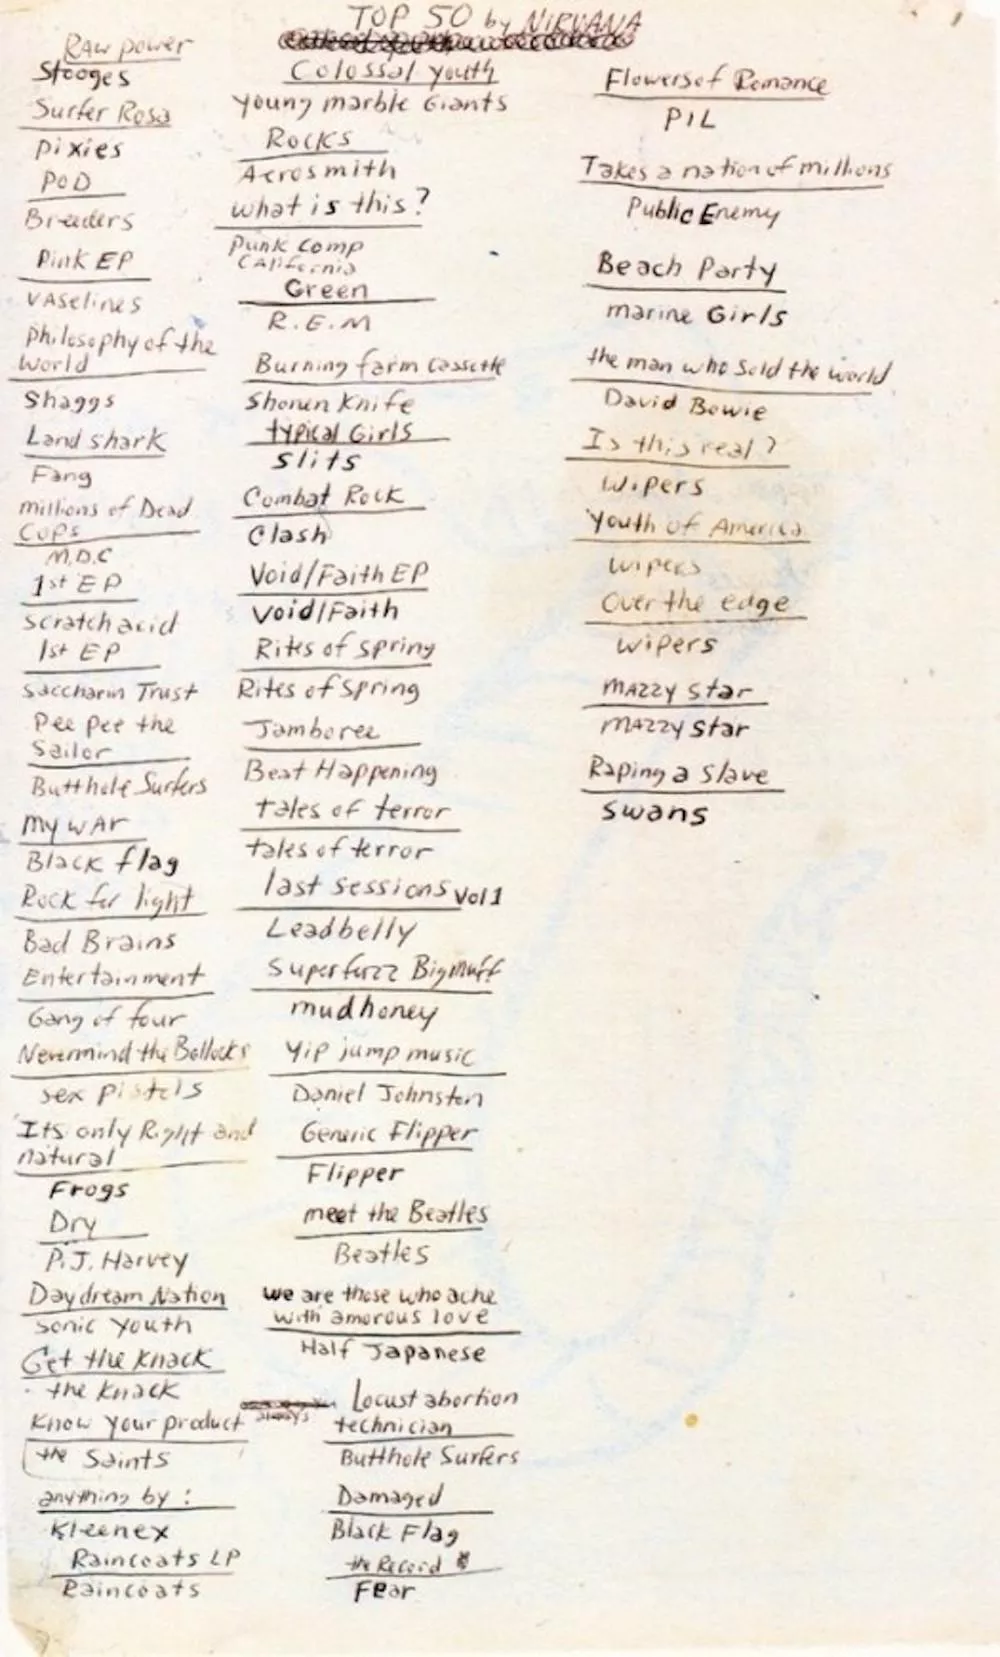 TOP 50 by NIRVANA
Raw power
Stooges
Surfer Rosa
Pixies
POD
Breeders
Pink EP
Vaselines
Philosophy of the
World
Shaggs
Land shark
Fang
millions of Dead
Cops
M.D.C
1st EP
scratch acid
1st EP
Saccharin Trust
Pee pee the
Sailor
Butthole Surfers
My war
Black flag
Rock for light
Bad Brains
Entertainment
Gang of four
Nevermind the Bollocks
sex pistols
Its only Right and
natural
Frogs
Dry
P.J. Harvey
Daydream Nation
sonic Youth
Get the knack
the knack
Know your product
the Saints
anything by :
Kleenex
Raincoats LP
Raincoats
Colossal youth
young marble Giants
Rocks
Aerosmith
what is this?
Punk Comp
California
Green
R.E.M
Burning farm cassette
Shonen Knife
typical Girls
Slits
Combat Rock
Clash
Void/Faith EP
Void/Faith
Rites of Spring
Rites of Spring
Jamboree
Beat Happening
tales of terror
tales of terror
last sessions Vol 1
Leadbelly
Superfuzz Bigmuff
mudhoney
Yip jump music
Daniel Johnston
Generic Flipper
Flipper
meet the Beatles
Beatles
we are those who ache
with amorous love
Half Japanese
Locust abortion
technician
Butthole Surfers
Damaged
Black Flag
the Record
Fear
Flowers of Romance
PIL
Takes a nation of millions
Public Enemy
Beach Party
marine Girls
the man who sold the world
David Bowie
Is this real?
Wipers
Youth of America
wipers
Over the edge
wipers
mazzy star
mazzy star
Raping a slave
swans